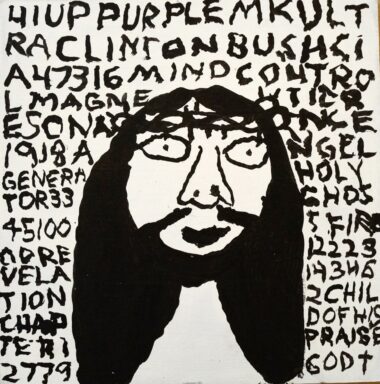 41UP PURPLE MKULT
RA CLINTON BUSH CI
A 47316 MIND CONTRO
L MAGNE TIC R
ESONA NCE
1918 A NGEL
GENERA HOLY
TOR 33 GHOS
45100 T FIR
12223
VELA 14346
TION 2 CHIL
CHAP D OF HIS
TER 11 PRAISE
2779 GOD †